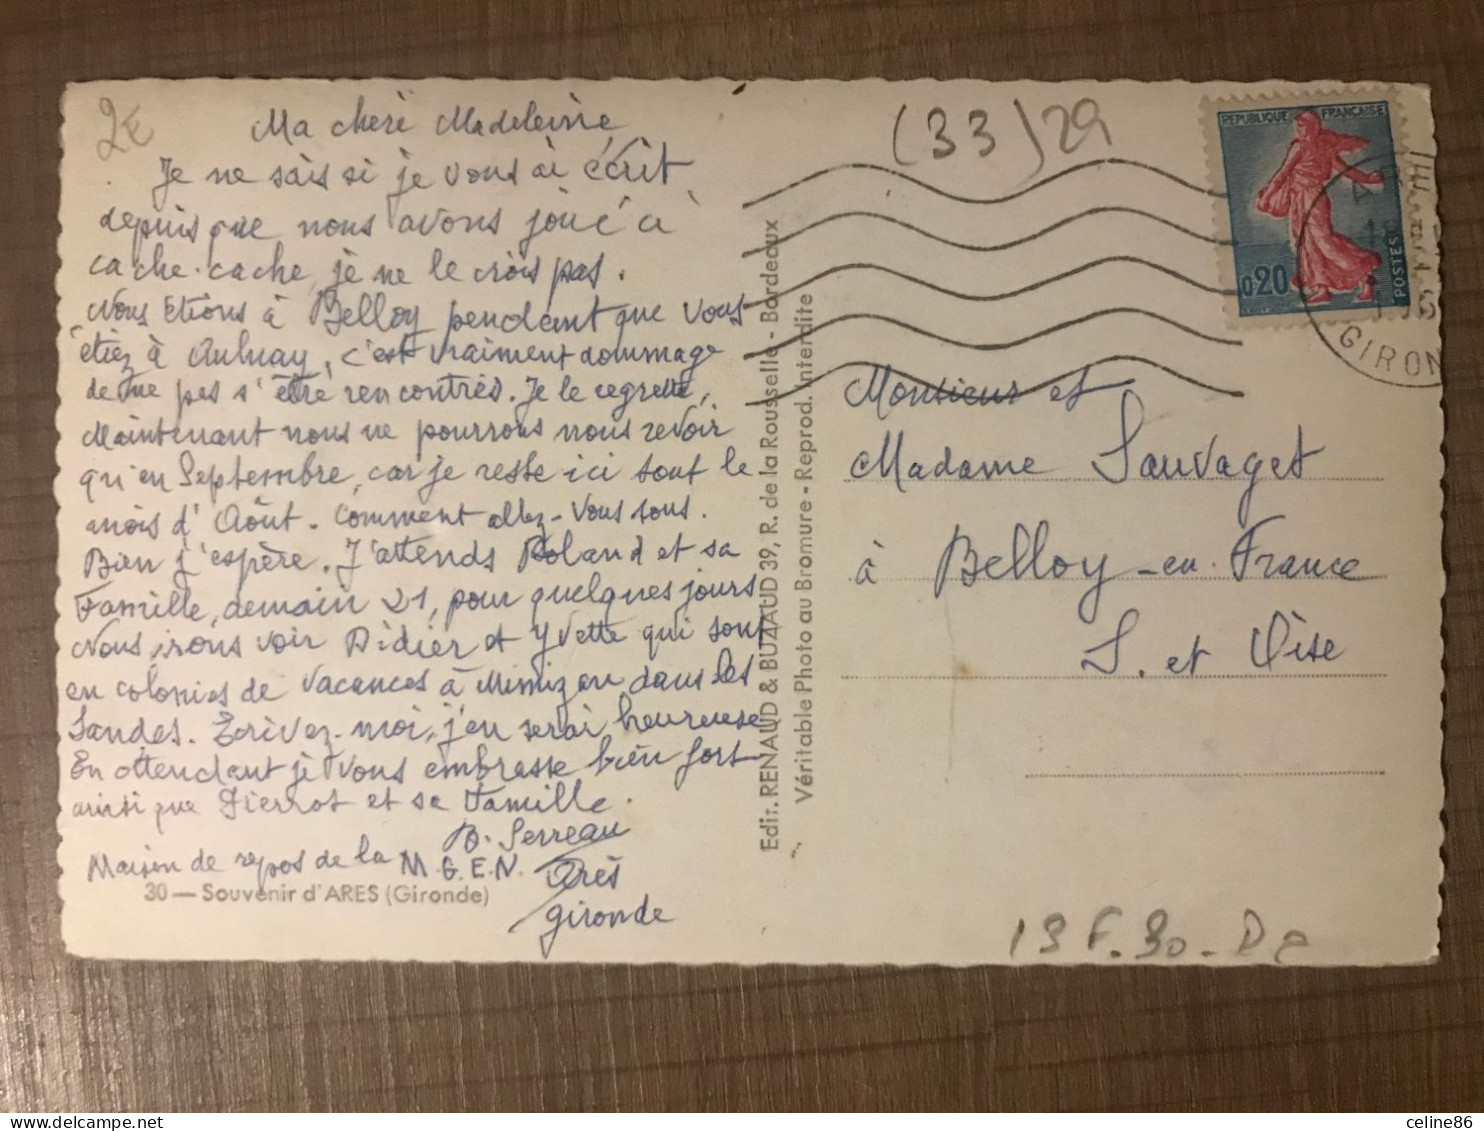 2€
Ma chère Madeleine
Je ne sais si je vous ai écrit
depuis que nous avons joué à
cache-cache, je ne le crois pas.
Nous étions à Belloy pendant que vous
étiez à Aulnay, c'est vraiment dommage
de ne pas s'être rencontrés. Je le regrette,
Maintenant nous ne pourrons nous revoir
qu'en Septembre, car je reste ici tout le
mois d'Août. Comment allez-vous tous.
Bien j'espère. J'attends Roland et sa
Famille, demain 21, pour quelques jours
Nous irons voir Didier et Yvette qui sont
en colonies de vacances à Mimizan dans les
Landes. Écrivez-moi, j'en serai heureuse
En attendant je vous embrasse bien fort
ainsi que Pierrot et sa Famille.
B. Serreau
Maison de repos de la M.G.E.N.
Arès
Gironde
30 — Souvenir d'ARES (Gironde)
Edit. RENAUD & BUZAUD 39, R. de la Rousselle - Bordeaux
Véritable Photo au Bromure - Reprod. Interdite
(33) 29
REPUBLIQUE FRANÇAISE
0,20
POSTES
GIRON
Monsieur et
Madame Sauvaget
à Belloy-en-France
S. et Oise
celine86